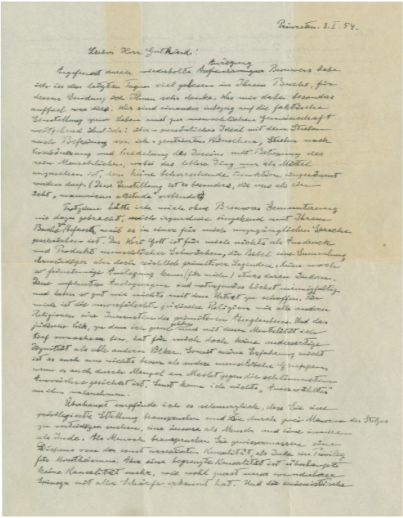 Princeton. 3. I. 54.
Lieber Herr Gutkind!
Anregung
Angefeuert durch wiederholte Brouwers habe
ich in den letzten Tagen viel gelesen in Ihrem Buche, für
dessen Sendung ich Ihnen sehr danke. Was mir dabei besonders
auffiel war dies. Wir sind einander inbezug auf die faktische
Einstellung zum Leben und zur menschlichen Gemeinschaft
weitgehend ähnlich: über-persönliches Ideal mit dem Streben
nach Befreiung von ich-zentrierten Wünschen, Streben nach
Verschönerung und Veredelung des Daseins mit Betonung des
rein Menschlichen, wobei das leblose Ding nur als Mittel
anzusehen ist, dem keine beherrschende Funktion eingeräumt
werden darf. (Diese Einstellung ist es besonders, die uns als ein
echt "unamerican attitude" verbindet.)
Trotzdem hätte ich mich ohne Brouwers Ermunterung
nie dazu gebracht, mich irgendwie eingehend mit Ihrem
Buch zu befassen, weil es in einer für mich unzugänglichen Sprache
geschrieben ist. Das Wort Gott ist für mich nichts als Ausdruck
und Produkt menschlicher Schwächen, die Bibel eine Sammlung
ehrwürdiger aber doch reichlich primitiver Legenden. Keine noch
so feinsinnige Auslegung kann (für mich) etwas daran ändern.
Diese verfeinerten Auslegungen sind naturgemäss höchst mannigfaltig
und haben so gut wie nichts mit dem Urtext zu schaffen. Für
mich ist die unverfälschte jüdische Religion wie alle anderen
Religionen eine Incarnation des primitiven Aberglaubens. Und das
gehöre
jüdische Volk, zu dem ich gern und mit dessen Mentalität ich
tief verwachsen bin, hat für mich doch keine andersartige
Dignität als alle anderen Völker. Soweit meine Erfahrung reicht
ist es auch um nichts besser als andere menschliche Gruppen
wenn es auch durch Mangel an Macht gegen die schlimmsten
Auswüchse gesichert ist. Sonst kann ich nichts "Auserwähltes"
an ihm wahrnehmen.
Überhaupt empfinde ich es schmerzlich, dass Sie eine
privilegierte Stellung beanspruchen und sie durch zwei Mauern des Stolzes
zu verteidigen suchen, eine äussere als Mensch und eine innere
als Jude. Als Mensch beanspruchen Sie gewissermassen einen
Dispens von der sonst acceptierten Kausalität, als Jude ein Privileg
für Monotheismus. Aber eine begrenzte Kausalität ist überhaupt
keine Kausalität mehr, wie wohl zuerst unser wunderbarer
Spinoza mit aller Schärfe erkannt hat. Und die animistische